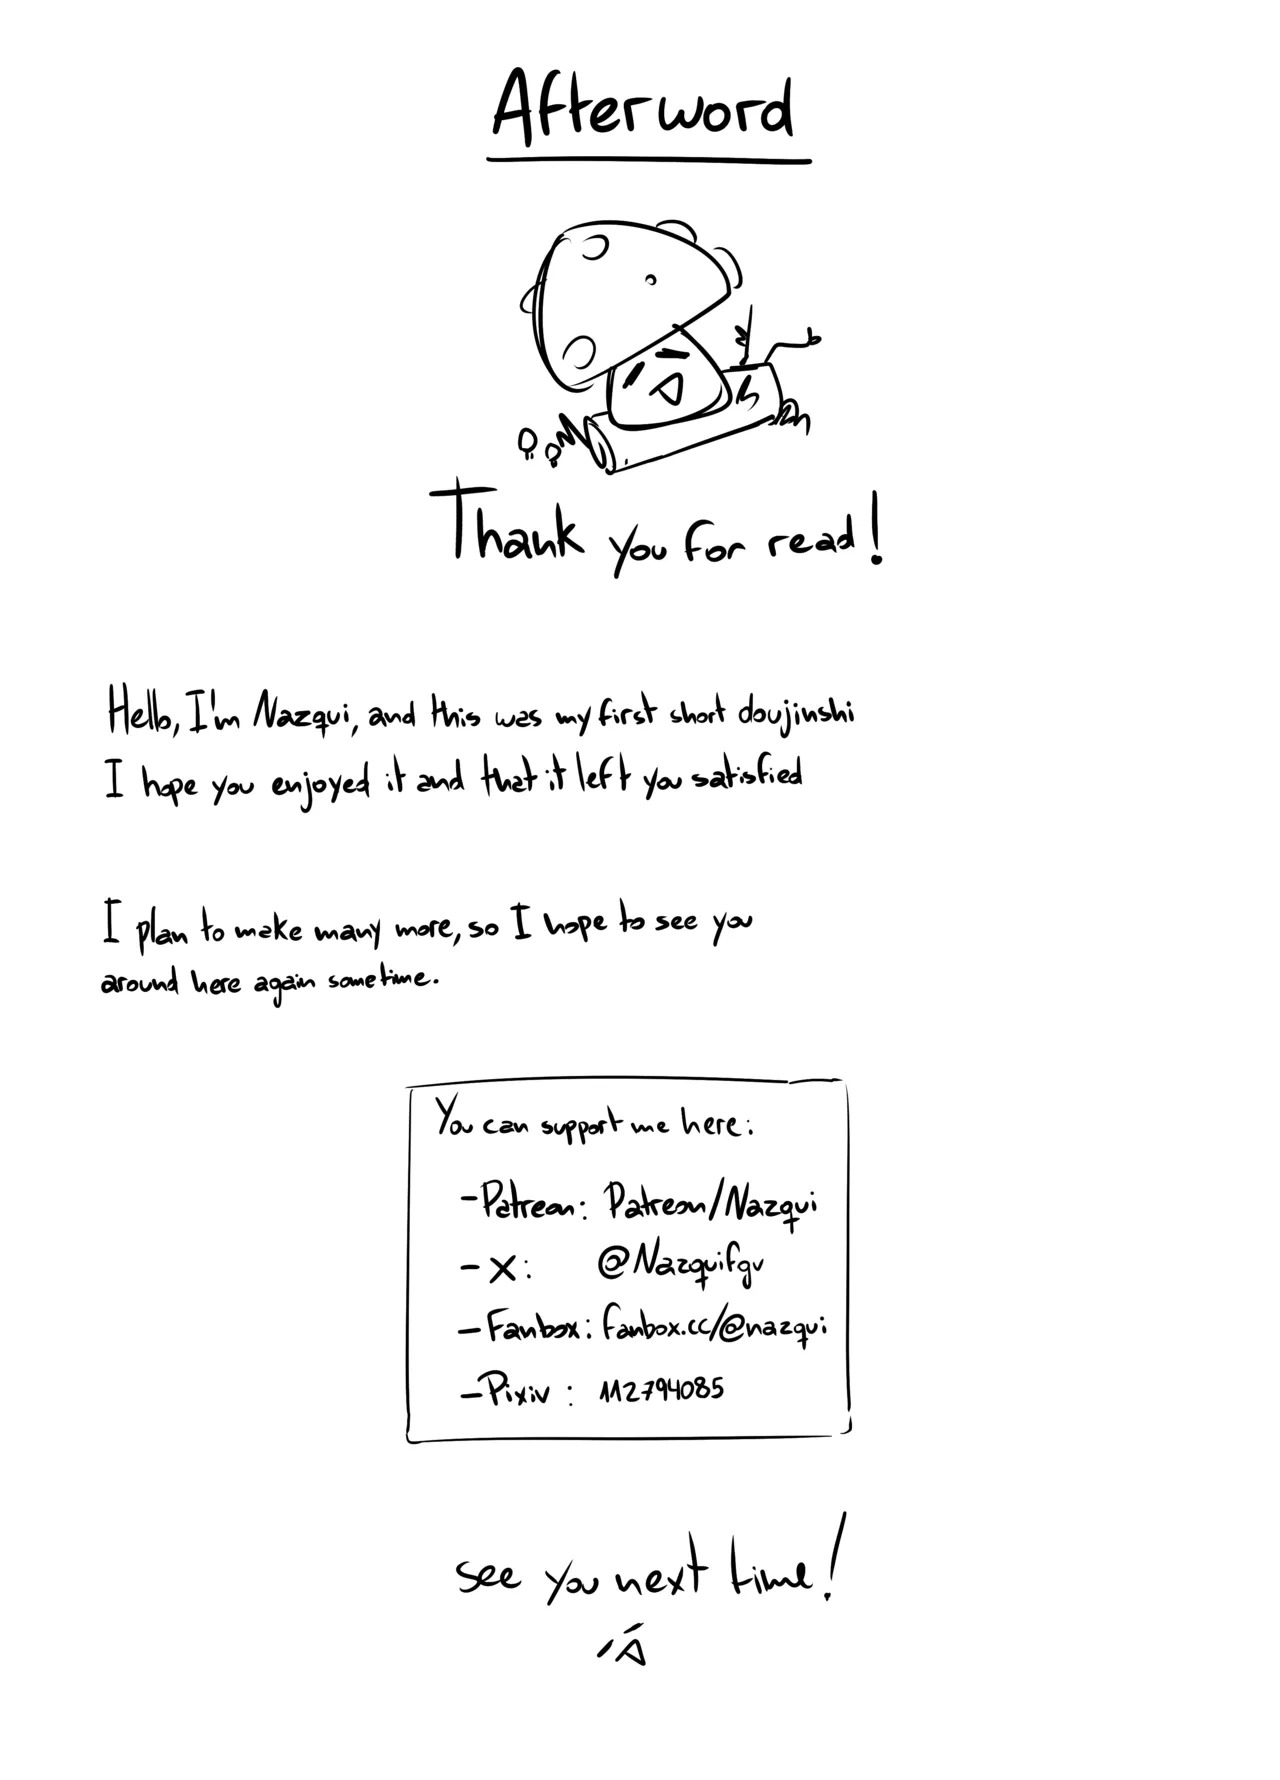 Afterword
Thank you for read!
Hello, I'm Nazqui, and this was my first short doujinshi
I hope you enjoyed it and that it left you satisfied
I plan to make many more, so I hope to see you
around here again sometime.
You can support me here:
-Patreon: Patreon/Nazqui
- X: @Nazquifgv
-Fanbox: fanbox.cc/@nazqui
-Pixiv: 112794085
see you next time!